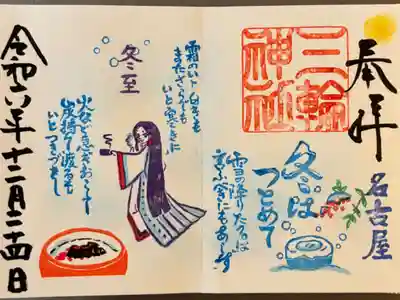 奉拝
名古屋
三輪
神社
冬は
つとめて
雪の降りたるは
言ふべきにもあらず
霜のいと白きも
またさらでも
いと寒きに
冬至
火など急ぎおこして
炭持て渡るも
いとつきづきし
令和六年十二月二十四日